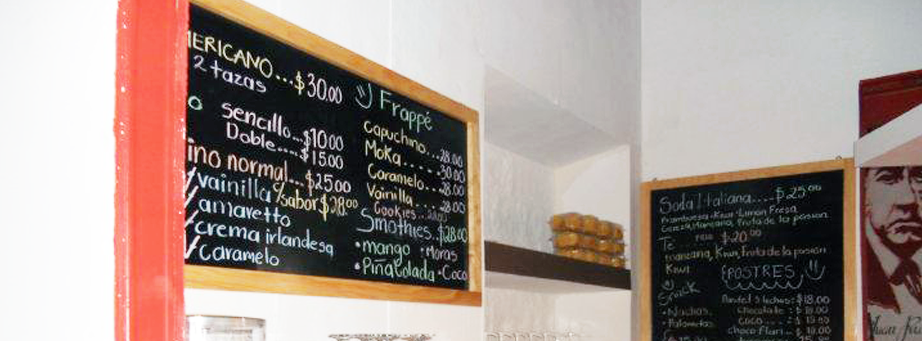 MERICANO...$30.00
2 tazas
o
sencillo...$10.00
Doble....$15.00
ino normal...$25.00
vainilla c/sabor $28.00
amaretto
crema irlandesa
caramelo
Frappé
Capuchino...28.00
Moka...30.00
Caramelo...28.00
Vainilla...28.00
Cookies...
Smothies.$28.00
•mango •Moras
•Piña Colada •Coco
Soda Italiana....$25.00
Frambuesa Kiwi Limón Fresa
Cereza, Manzana, Fruta de la pasion
Te $20.00
manzana, Kiwi, fruta de la pasion
Kiwi
POSTRES
Snack
Pan de 3 leches:$18.00
•Nachos. Chocolate:$18.00
•Palomitas Coco
Choco Flan..:$18.00